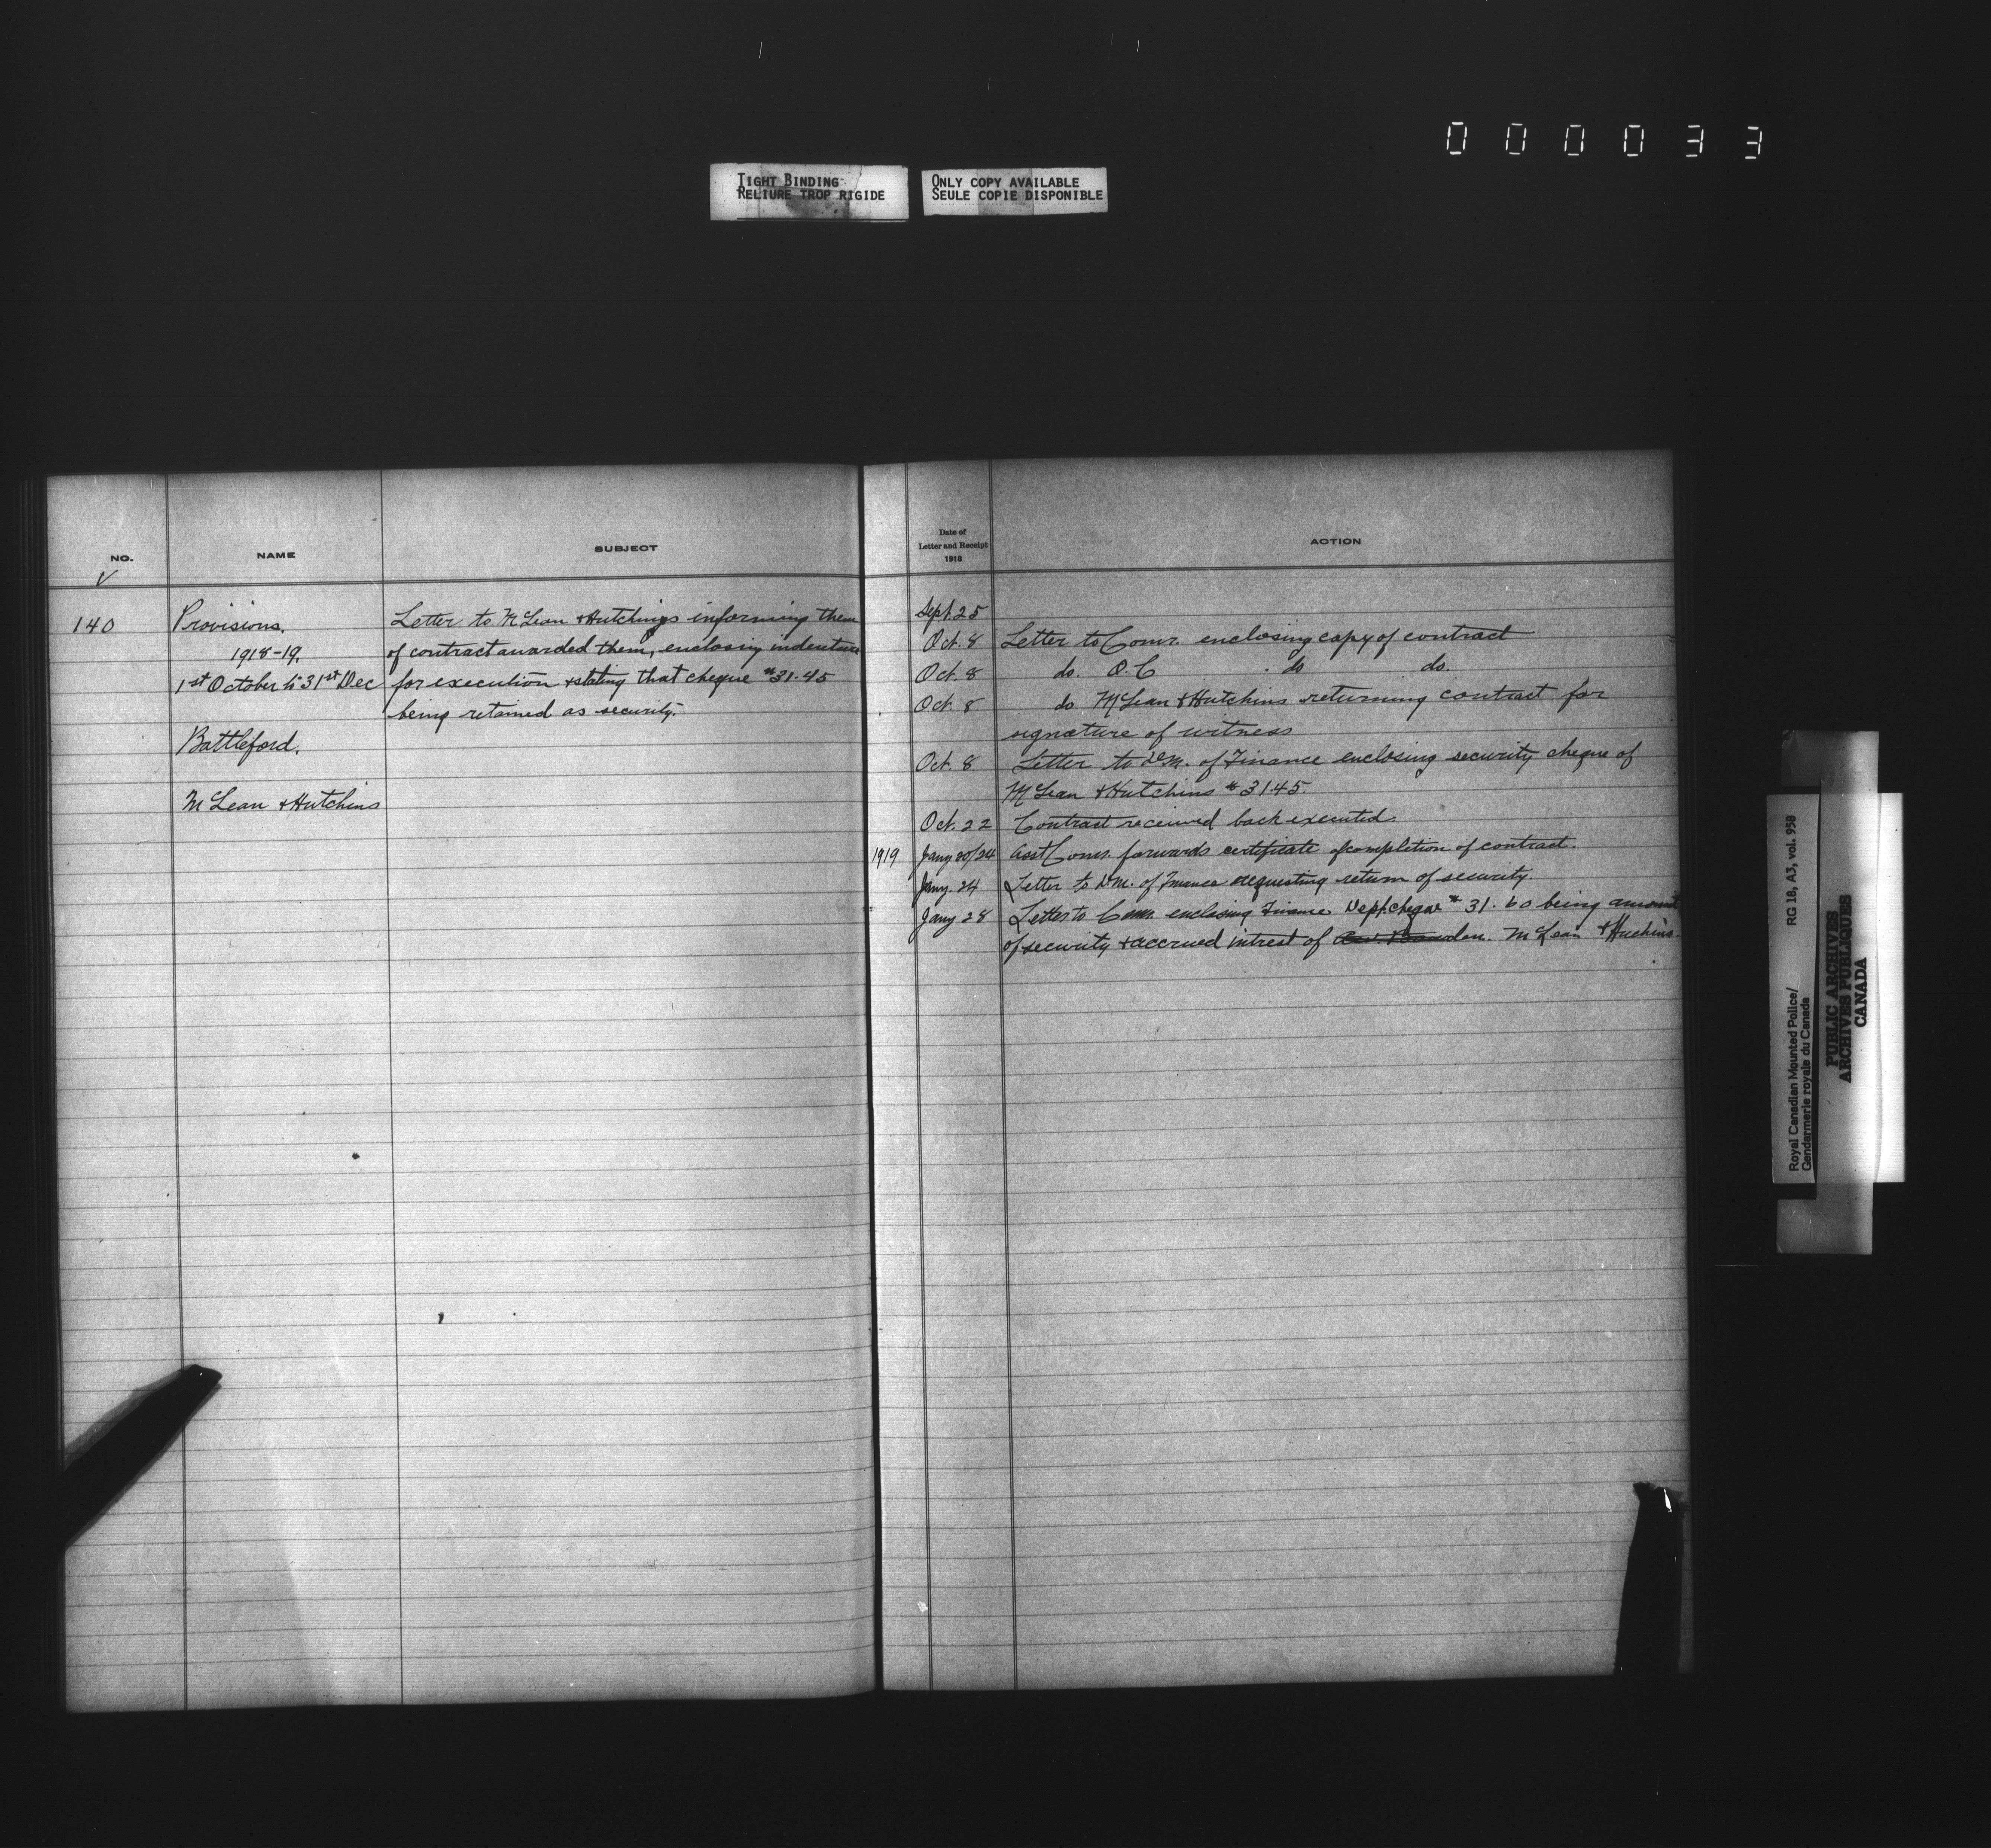 000033
TIGHT BINDING
RELIURE TROP RIGIDE
ONLY COPY AVAILABLE
SEULE COPIE DISPONIBLE
NO.
NAME
SUBJECT
✓
140
Provisions.
1918-19.
1st October to 31st Dec
Battleford.
McLean & Hutchins
Letter to McLean & Hutchings informing them
of contract awarded them, enclosing indenture
for execution & stating that cheque #31.45
being retained as security.
Date of
Letter and Receipt
1918
ACTION
Sept. 25
Oct. 8 Letter to Comr. enclosing copy of contract
Oct. 8 do. O.C. do do.
Oct. 8 do McLean & Hutchins returning contract for
signature of witness
Oct. 8 Letter to D.M. of Finance enclosing security cheque of
McLean & Hutchins #3145.
Oct. 22 Contract received back executed.
1919 Jany 20/24 Asst Comr. forwards certificate of completion of contract.
Jany. 24 Letter to D.M. of Finance requesting return of security.
Jany 28 Letter to Comr. enclosing Finance Dept. cheque #31.60 being amount
of security & accrued intrest of McLean & Huchins.
Royal Canadian Mounted Police/
Gendarmerie royale du Canada
RG 18, A3, vol. 958
PUBLIC ARCHIVES
ARCHIVES PUBLIQUES
CANADA